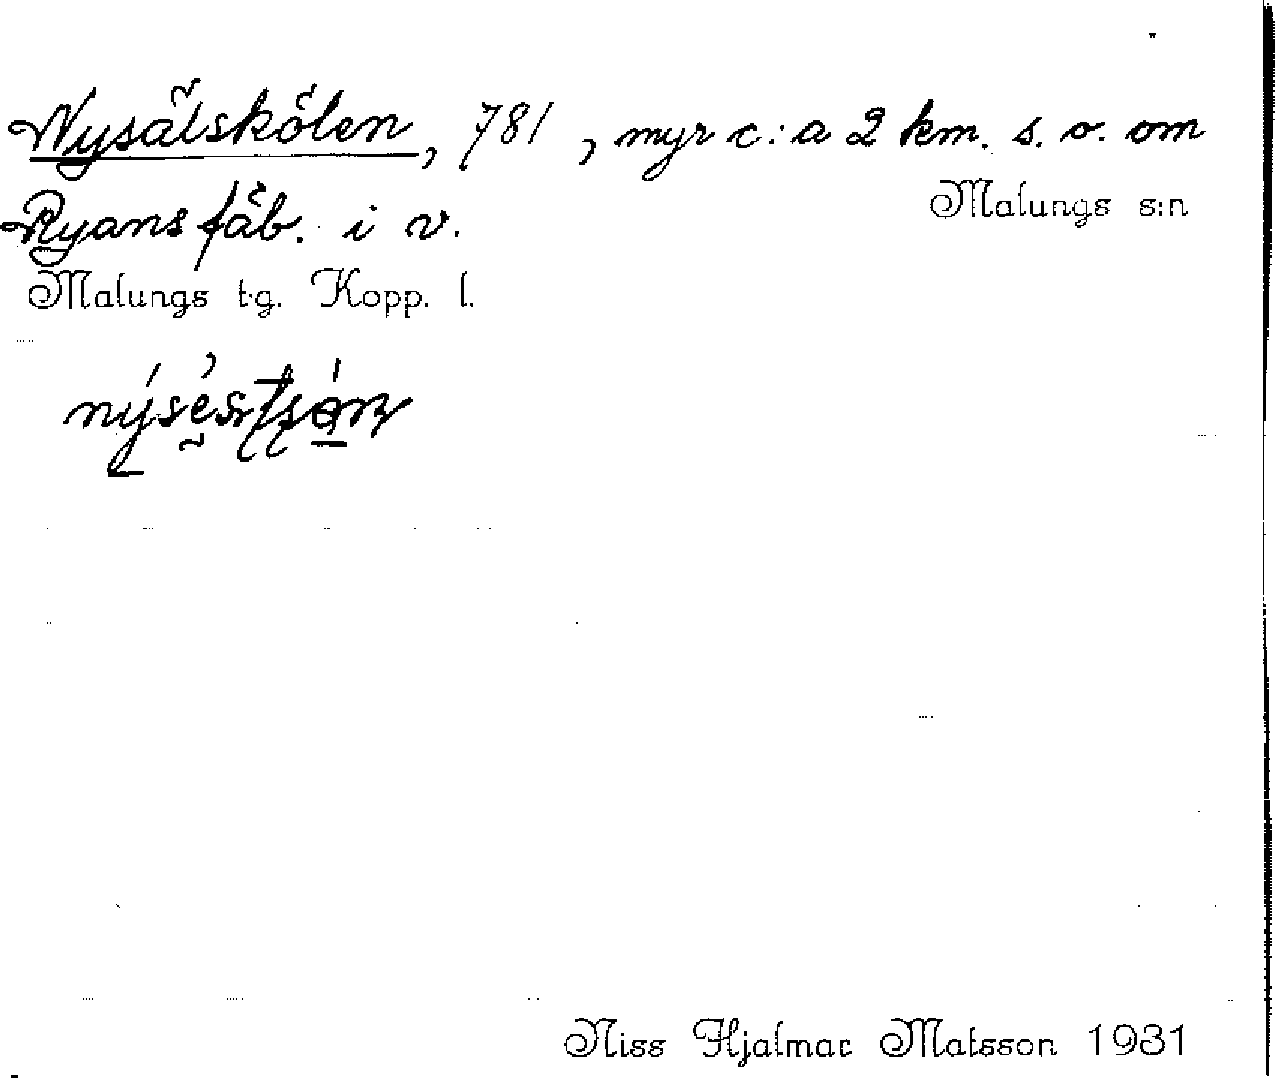 Nysälskölen, 781, myr c:a 2 km. s. o. om
Malungs s:n
Ryans fäb. i v.
Malungs tg. Kopp. l.
Niss Hjalmar Matsson 1931